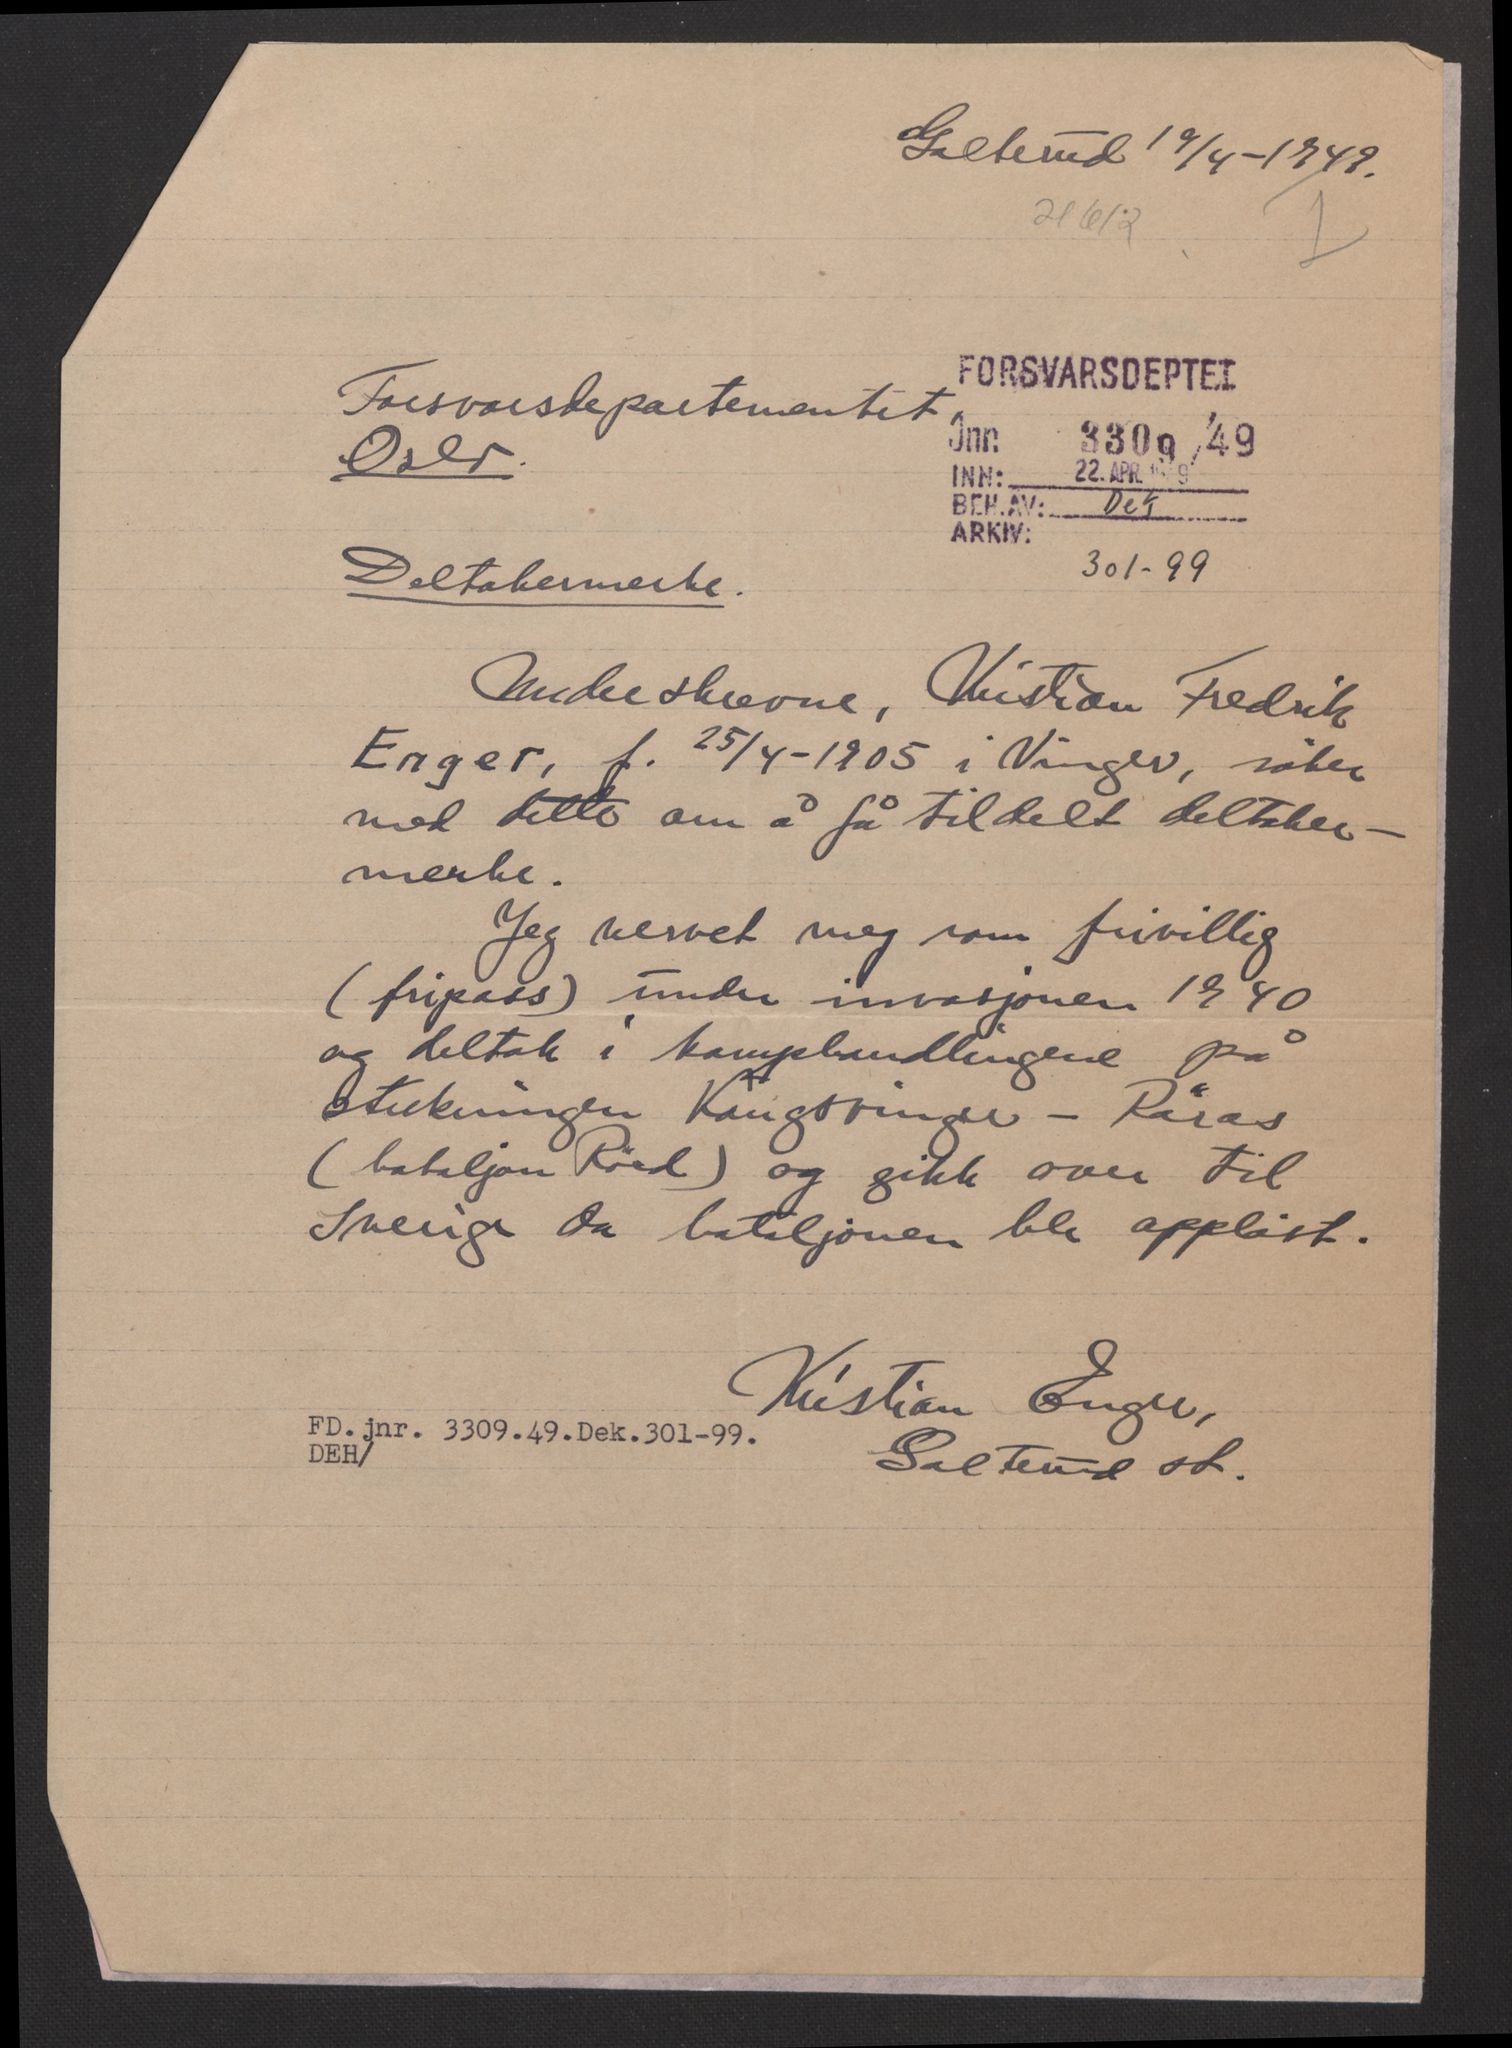 Galterud 19/4-1949.
21612
1
FORSVARSDEPTET
Forsvarsdepartementet,
Jnr. 3309/49
Oslo.
INN: 22. APR. 1949
BEH. AV: Dek
ARKIV:
301-99
Deltakermerke.
Underskrevne, Kristian Fredrik
Enger, f. 25/4-1905 i Vinger, söker
med dette om å få tildelt deltaker-
merke.
Jeg vervet meg som frivillig
(fripass) under invasjonen 1940
og deltok i kamphandlingene på
strekningen Kongsvinger - Röros
(bataljon Röed) og gikk over til
Sverige da bataljonen ble opplöst.
Kristian Enger,
Galterud st.
FD. jnr. 3309.49.Dek.301-99.
DEH/